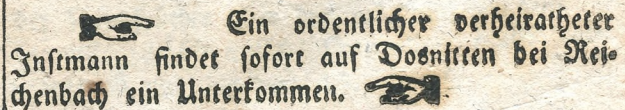 Ein ordentlicher verheiratheter
Instmann findet sofort auf Dosnitten bei Rei-
chenbach ein Unterkommen.